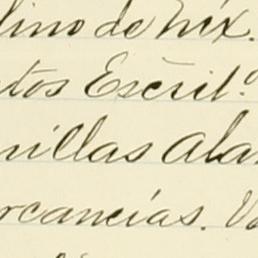 lino de Mix.
tos Escrit.º
nillas Ala
rcancías. V